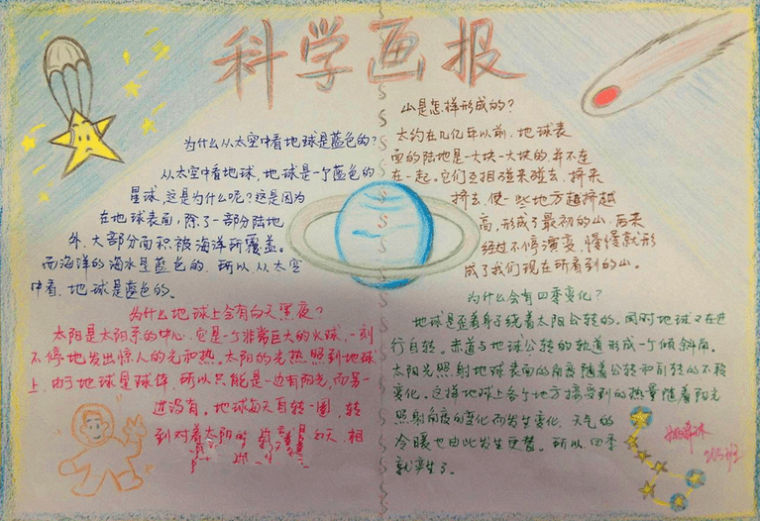 科学画报
为什么从太空中看地球是蓝色的?
从太空中看地球,地球是一个蓝色的
星球,这是为什么呢?这是因为
在地球表面,除了一部分陆地
外,大部分面积被海洋所覆盖。
而海洋的海水是蓝色的,所以,从太空
中看,地球是蓝色的。
为什么地球上会有白天黑夜?
太阳是太阳系的中心,它是一个非常巨大的火球,一刻
不停地发出惊人的光和热。太阳的光热照到地球
上,由于地球是球体,所以只能是一边有阳光,而另一
边没有。地球每天自转一圈,转
到对着太阳的 是白天,相
山是怎样形成的?
大约在几亿年以前,地球表
面的陆地是一大块一大块的,并不连
在一起。它们互相碰来碰去,挤来
挤去,使一些地方越挤越
高,形成了最初的山,后来
经过不停演变,慢慢就形
成了我们现在所看到的山。
为什么会有四季变化?
地球是歪着身子绕着太阳公转的。同时地球又在进
行自转。赤道与地球公转的轨道形成一个倾斜角。
太阳光照射地球表面的角度随着公转和自转的不同
变化。这样地球上各个地方接受到的热量随着阳光
照射角度的变化而发生变化,天气的
冷暖也由此发生更替。所以,四季
就产生了。